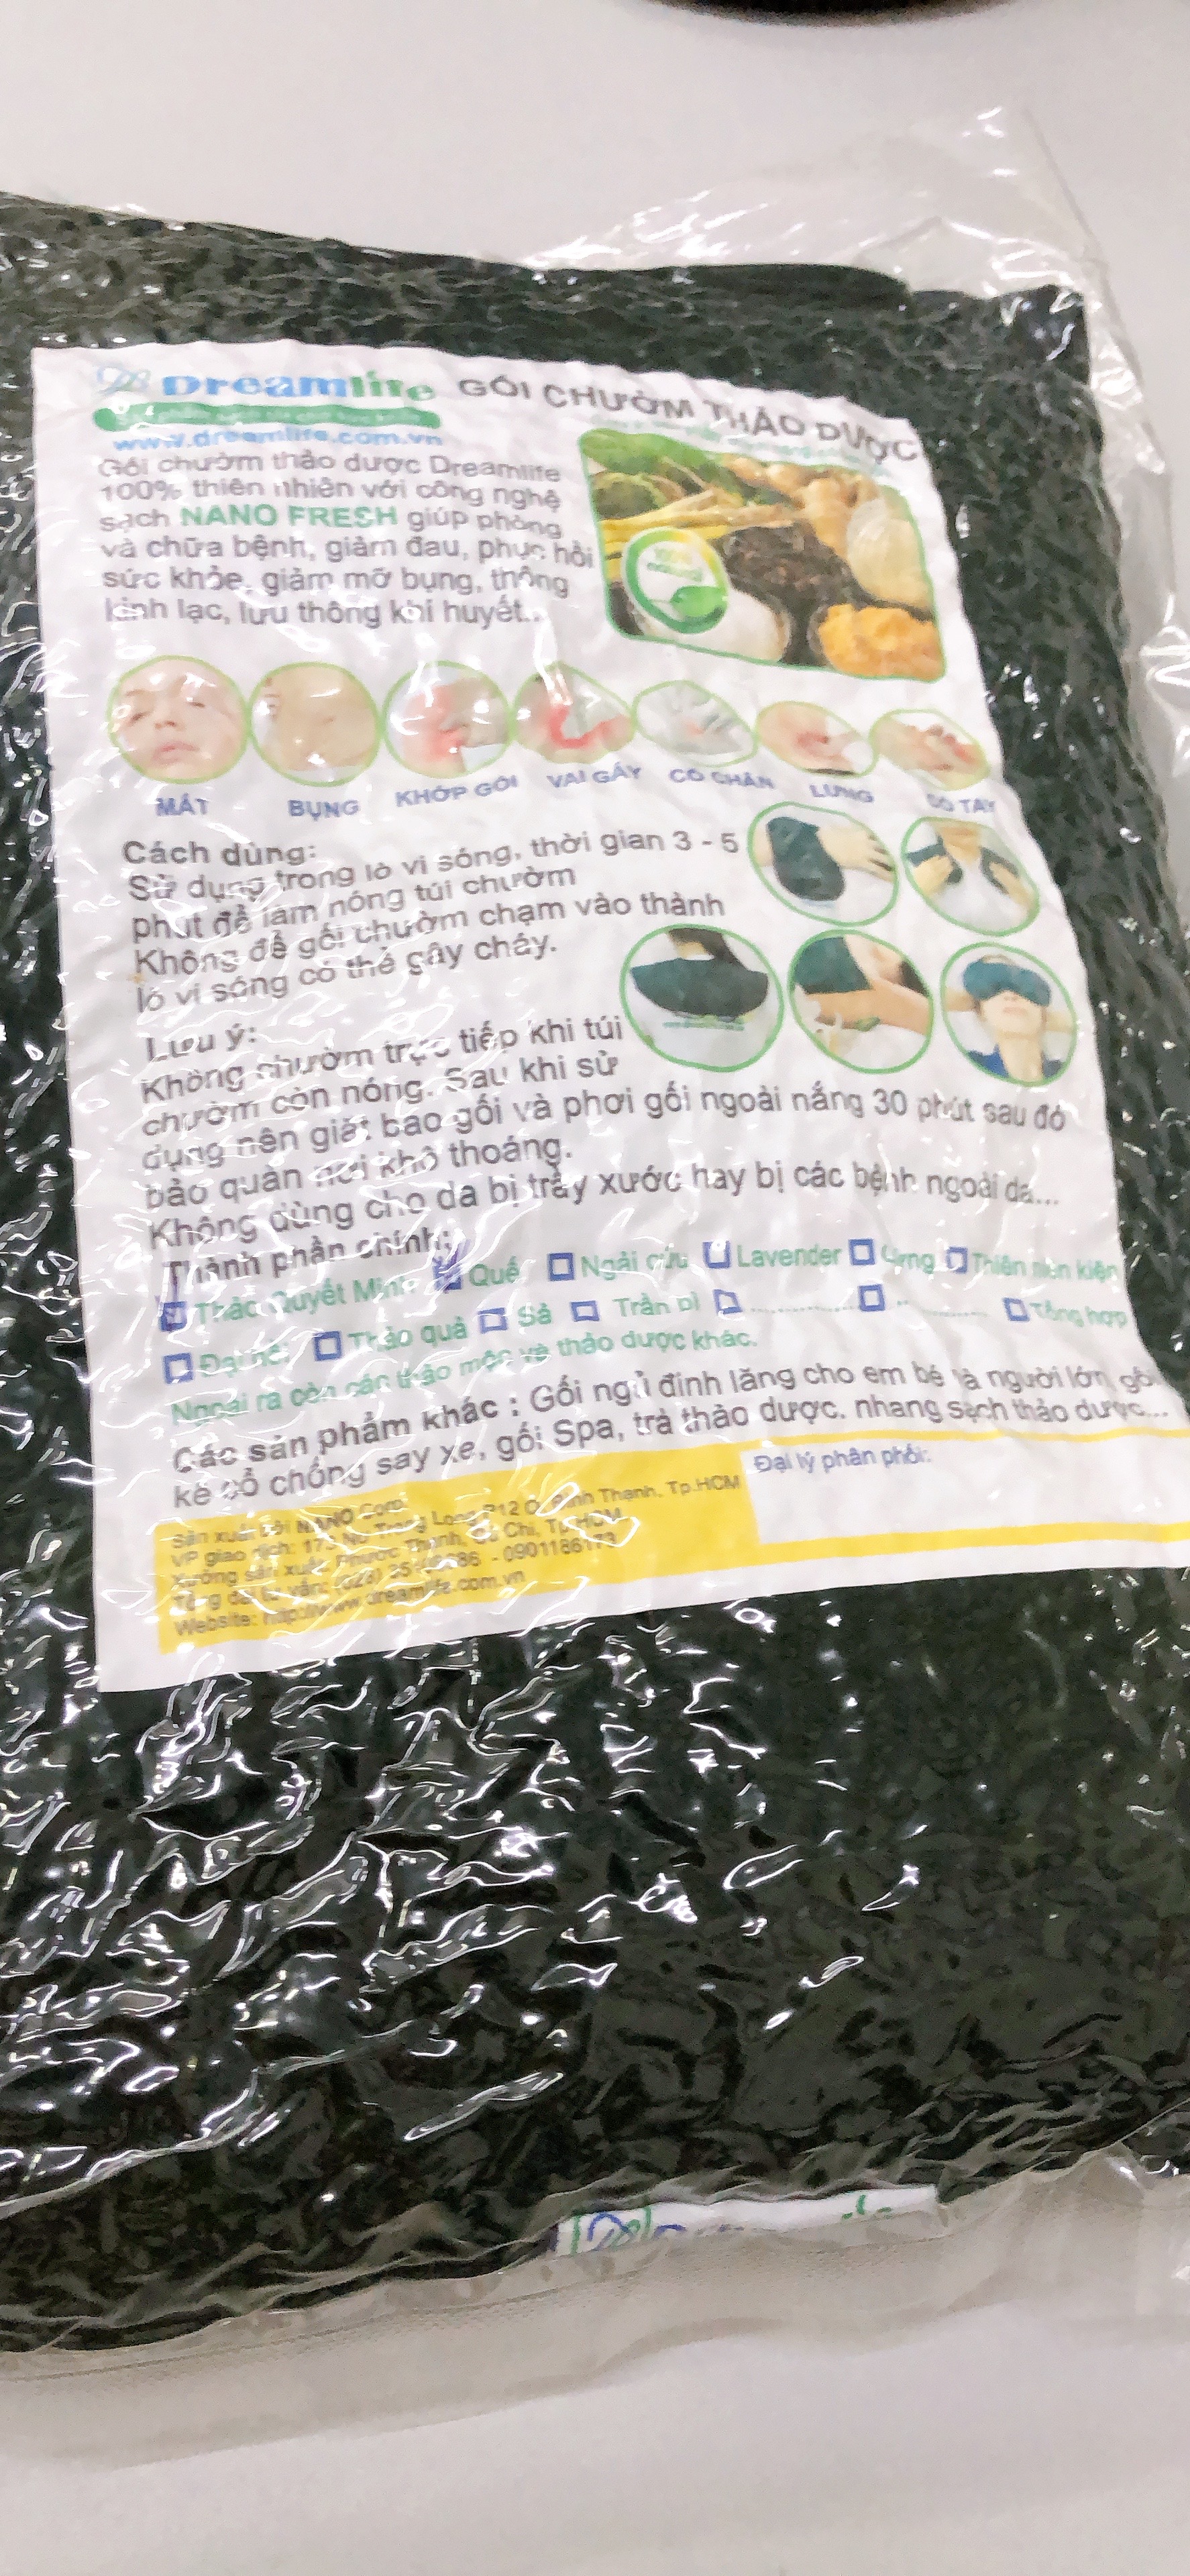 Dreamlife GỐI CHƯỜM THẢO DƯỢC
www.dreamlife.com.vn
Gối chườm thảo dược Dreamlife
100% thiên nhiên với công nghệ
sạch NANO FRESH giúp phòng
và chữa bệnh, giảm đau, phục hồi
sức khỏe, giảm mỡ bụng, thông
kinh lạc, lưu thông khí huyết..
MẮT BỤNG KHỚP GỐI VAI GÁY CỔ CHÂN LƯNG CỔ TAY
Cách dùng:
Sử dụng trong lò vi sóng, thời gian 3 - 5
phút để làm nóng túi chườm
Không để gối chườm chạm vào thành
lò vi sóng có thể gây cháy.
Lưu ý:
Không chườm trực tiếp khi túi
chườm còn nóng. Sau khi sử
dụng nên giặt bao gối và phơi gối ngoài nắng 30 phút sau đó
bảo quản nơi khô thoáng.
Không dùng cho da bị trầy xước hay bị các bệnh ngoài da...
Thành phần chính:
Thảo Quyết Minh Quế Ngải cứu Lavender Gừng Thiên niên kiện
Đại hồi Thảo quả Sả Trần bì Tổng hợp
Ngoài ra còn các thảo mộc và thảo dược khác.
Các sản phẩm khác : Gối ngủ đinh lăng cho em bé và người lớn, gối
kê cổ chống say xe, gối Spa, trà thảo dược, nhang sạch thảo dược...
Đại lý phân phối:
Sản xuất bởi NANO Corp
VP giao dịch: Thạnh, Tp.HCM
Xưởng sản xuất: Phước Thạnh, Củ Chi, Tp.HCM
Tổng đài tư vấn:
Website: http://www.dreamlife.com.vn